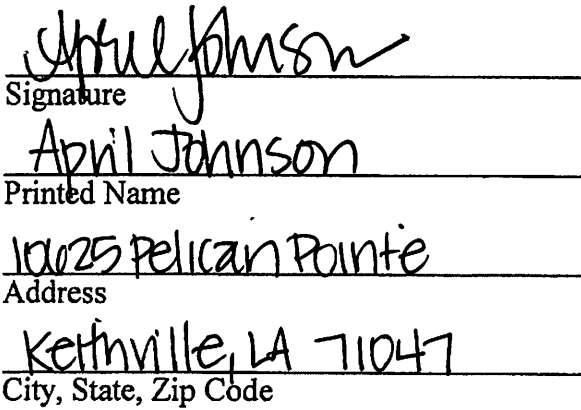 April Johnson
Signature
April Johnson
Printed Name
10625 Pelican Pointe
Address
Keithville, LA 71047
City, State, Zip Code